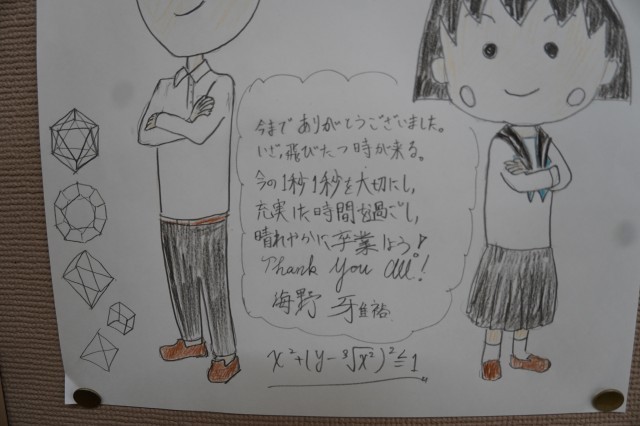 今までありがとうございました。
いざ、飛びたつ時が来る。
今の1秒1秒を大切にし、
充実した時間を過ごし、
晴れやかに卒業しよう!
Thank You All!
海野 雅裕
x²+(y-³√x²)²≦1